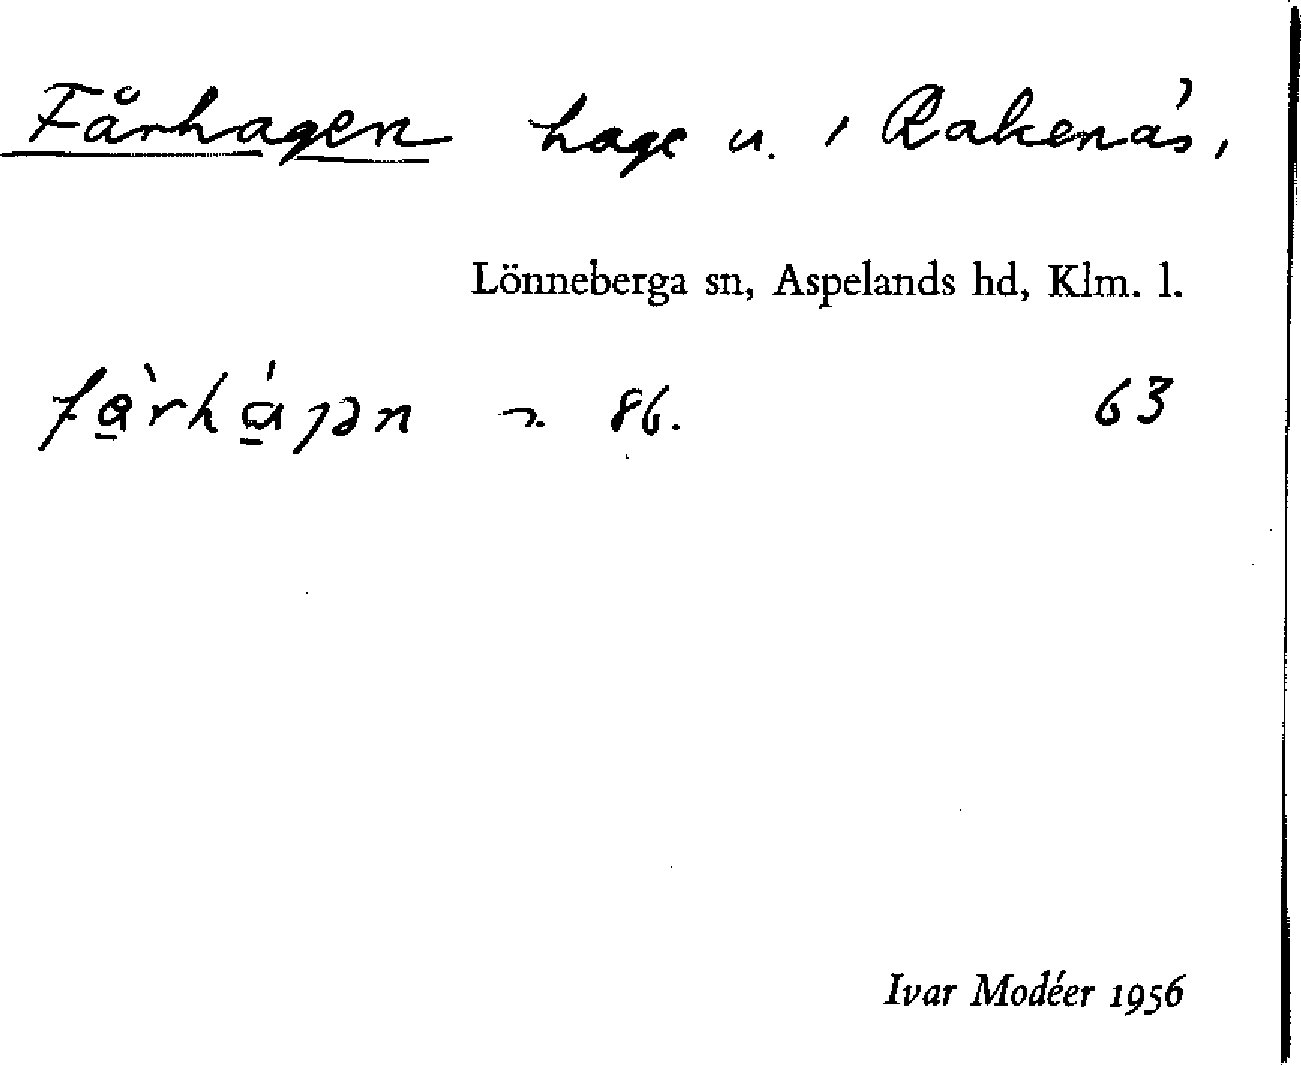 Fårhagen hage u. i Rakenäs,
Lönneberga sn, Aspelands hd, Klm. l.
86. 63
Ivar Modéer 1956